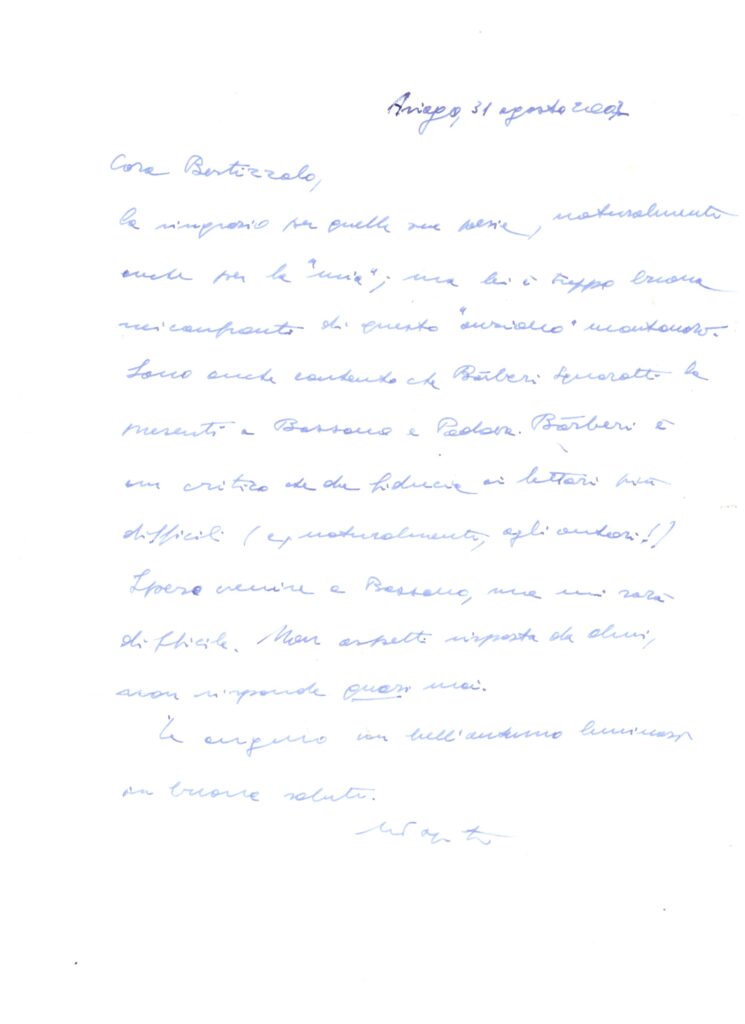 Asiago, 31 agosto 2007
Cara Bertizzolo,
la ringrazio per quelle sue poesie, naturalmente
anche per la "mia"; ma lei è troppo buona
nei confronti di questo "anziano" montanaro.
Sono anche contento che Bàrberi Squarotti la
presenti a Bassano e Padova. Bàrberi è
un critico che dà fiducia ai lettori più
difficili (e, naturalmente, agli autori!)
Spero venire a Bassano, ma mi sarà
difficile. Non aspetti risposta da
non risponde quasi mai.
Le auguro un bell'autunno luminoso
in buona salute.